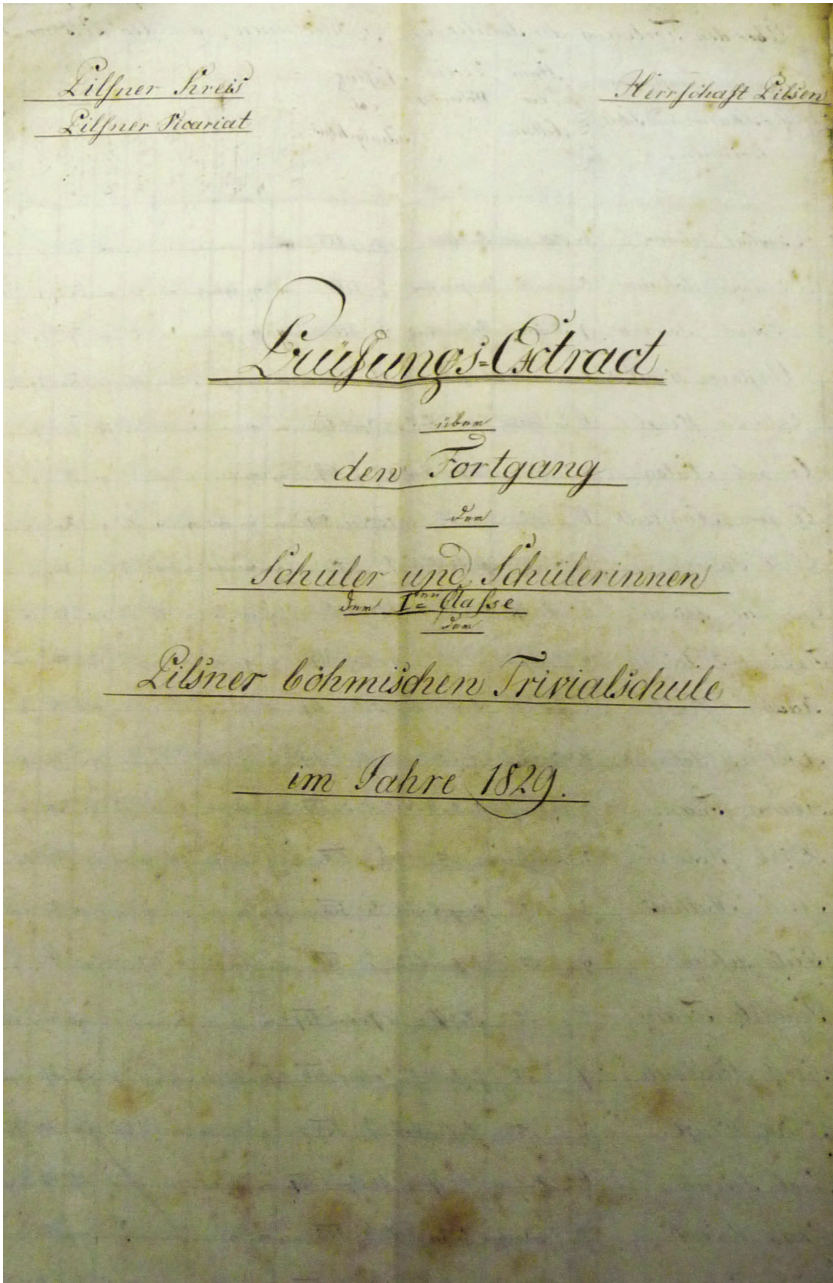 Pilsner Kreis
Herrschaft Pilsen
Pilsner Vicariat
Prüfungs=Extract
über
den Fortgang
der
Schüler und Schülerinnen
der I.ten Classe
der
Pilsner böhmischen Trivialschule
im Jahre 1829.